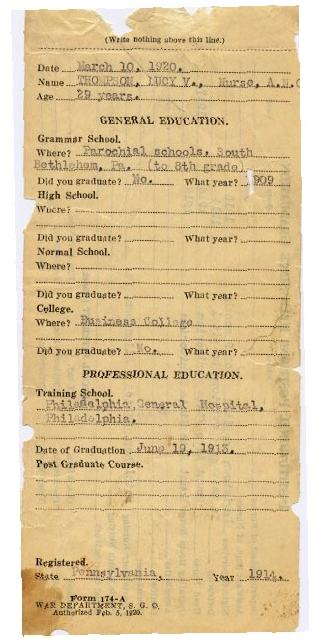 (Write nothing above this line.)
Date March 10, 1920.
Name THOMPSON, LUCY V., Nurse, A.N.C
Age 29 years.
GENERAL EDUCATION.
Grammar School.
Where? Parochial schools. South
Bethlehem, Pa. (to 8th grade)
Did you graduate? No. What year? 1909
High School.
Where?
Did you graduate? What year?
Normal School.
Where?
Did you graduate? What year?
College.
Where? Business College
Did you graduate? No. What year?
PROFESSIONAL EDUCATION.
Training School.
Philadelphia General Hospital,
Philadelphia.
Date of Graduation June 19, 1913.
Post Graduate Course.
Registered.
State Pennsylvania, Year 1914.
Form 174-A
WAR DEPARTMENT, S. G. O.
Authorized Feb. 5, 1920.